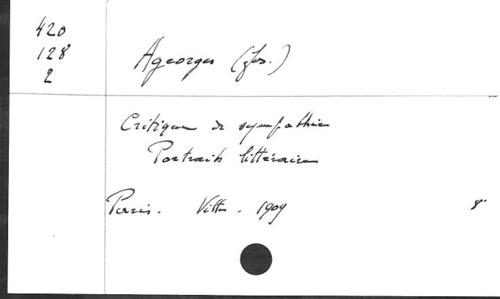 420
128
2
Ageorges (Jos.)
Critique de sympathie
Portraits littéraires
Paris. Vitte. 1909 8°